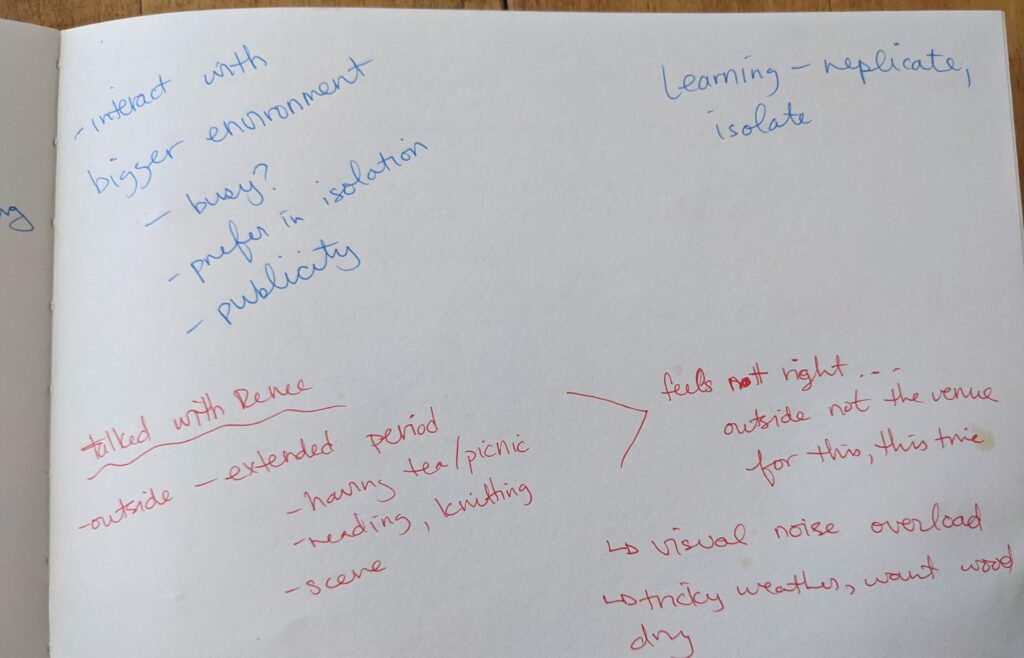 - interact with
bigger environment
- busy?
- prefer in isolation
- publicity
Learning - replicate,
isolate
talked with Renee
- outside - extended period
- having tea/picnic
- reading, knitting
- scene
feels not right...
outside not the venue
for this, this time
↳ visual noise overload
↳ tricky weather, want wood
dry